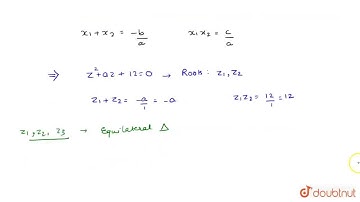 x₁+x₂ = -b/a    x₁x₂ = c/a
⇒ z²+az+12=0 → Roots: z₁, z₂
z₁+z₂ = -a/1 = -a    z₁z₂ = 12/1 = 12
z₁, z₂, z₃ → Equilateral Δ
doubtnut